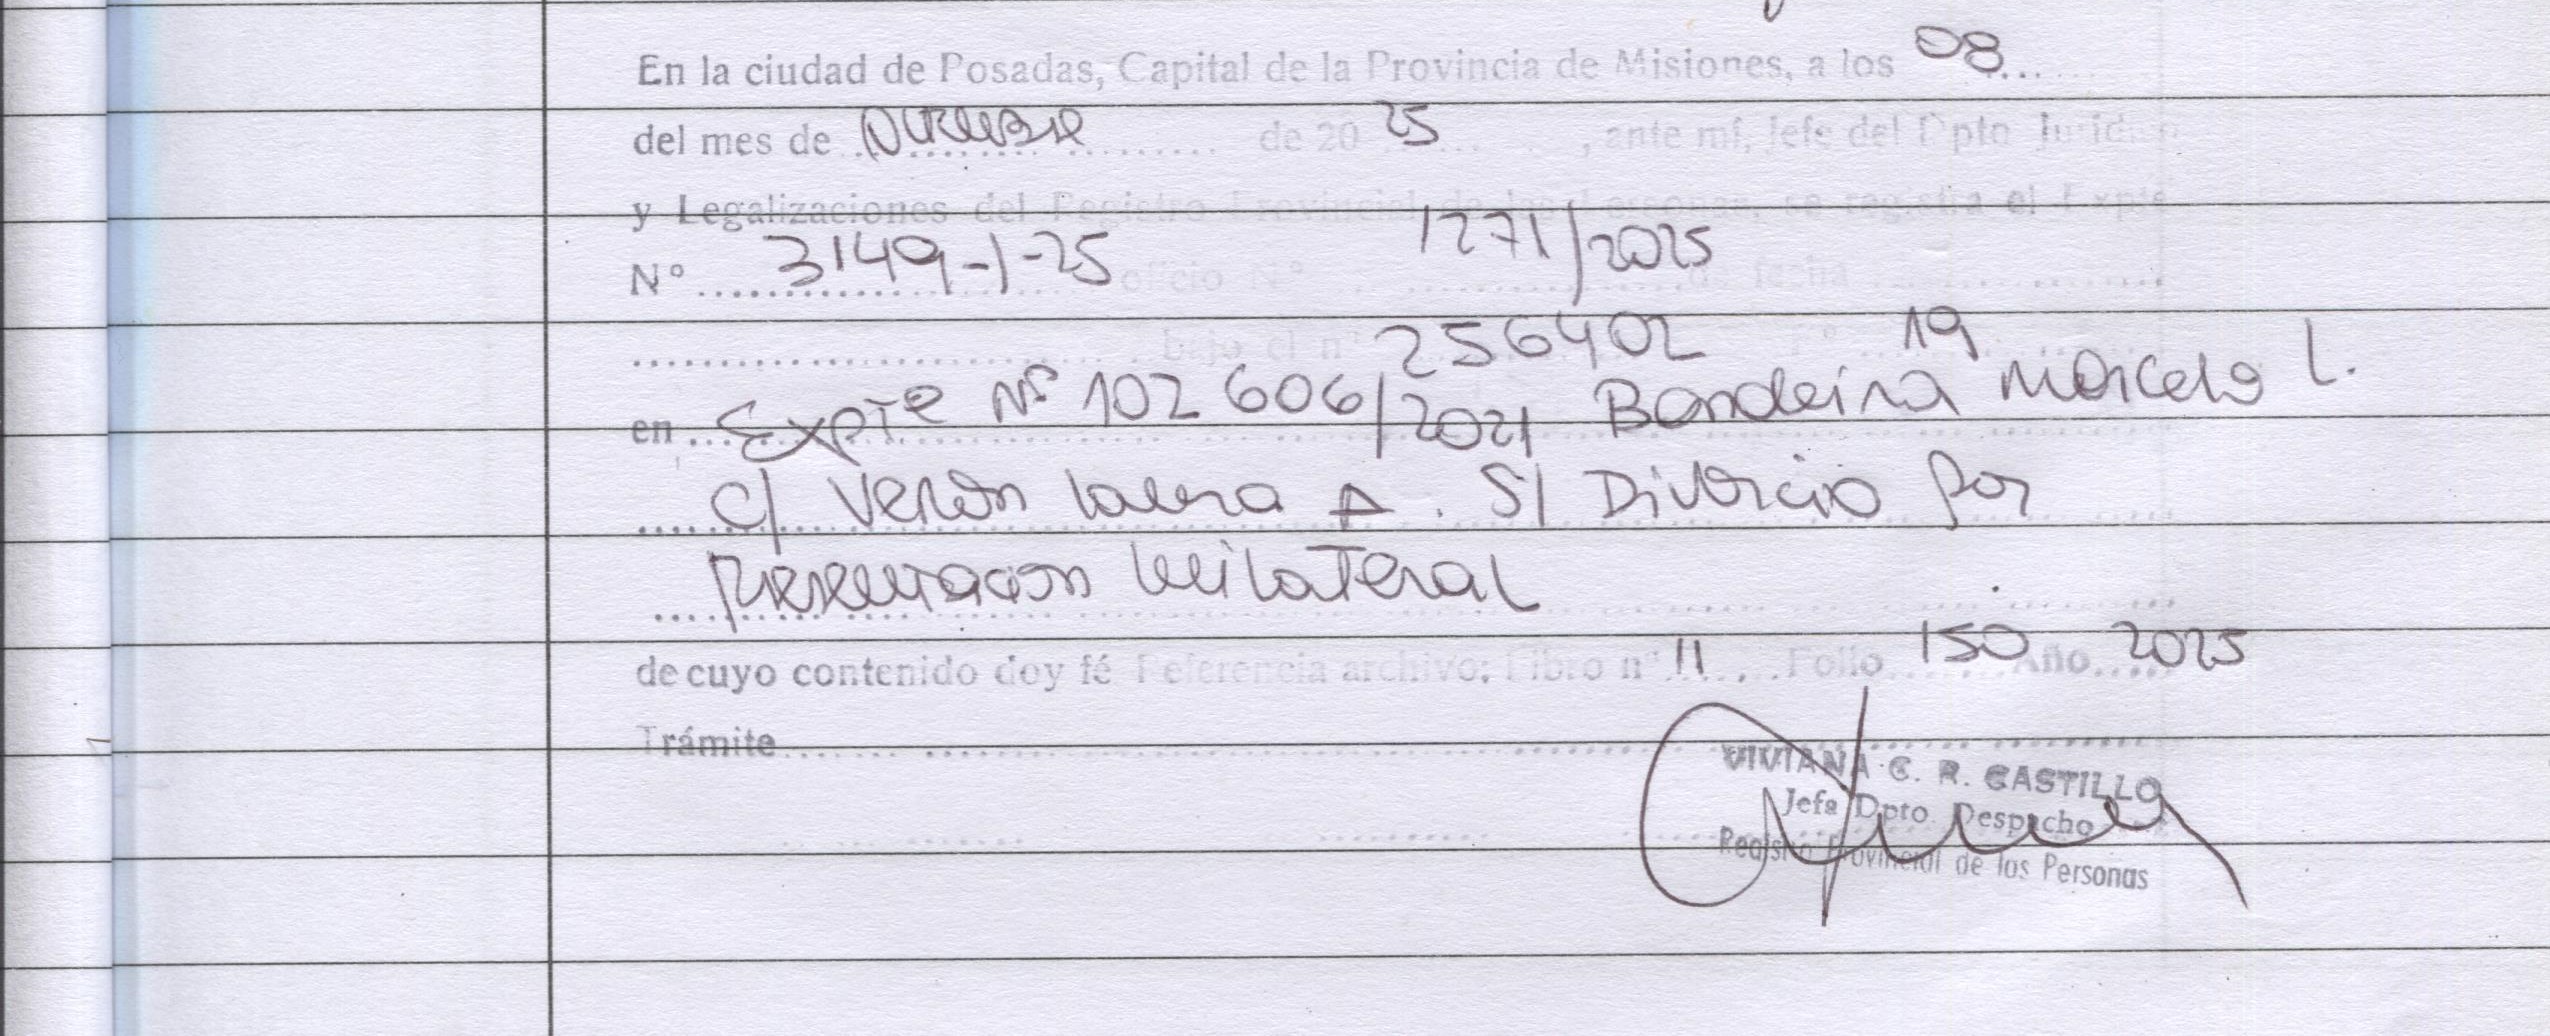 En la ciudad de Posadas, Capital de la Provincia de Misiones, a los 08...
del mes de Diciembre de 20 25, ante mí, Jefe del Dpto Jurídico
y Legalizaciones del Registro Provincial de las Personas, se registra el Expte
N° 3149-1-25 oficio N° 1271/2025 de fecha
bajo el n° 256402 F° 19
en Expte Nº 102 606/2021 Bandeira Marcelo L.
c/ Verón Laura A. S/ Divorcio Por
Presentacion Unilateral
de cuyo contenido doy fé Referencia archivo: Libro n° 11 Folio 150 Año 2025
Trámite
VIVIANA C. R. CASTILLO
Jefa Dpto Despacho
Registro Provincial de las Personas